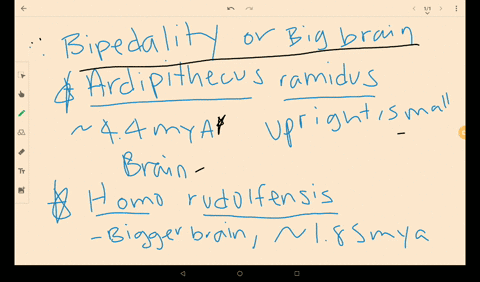 1/1
Bipedality or Big brain
Ardipithecus ramidus
~4.4myA upright, small
Brain -
Homo rudolfensis
-Bigger brain, ~1.85mya